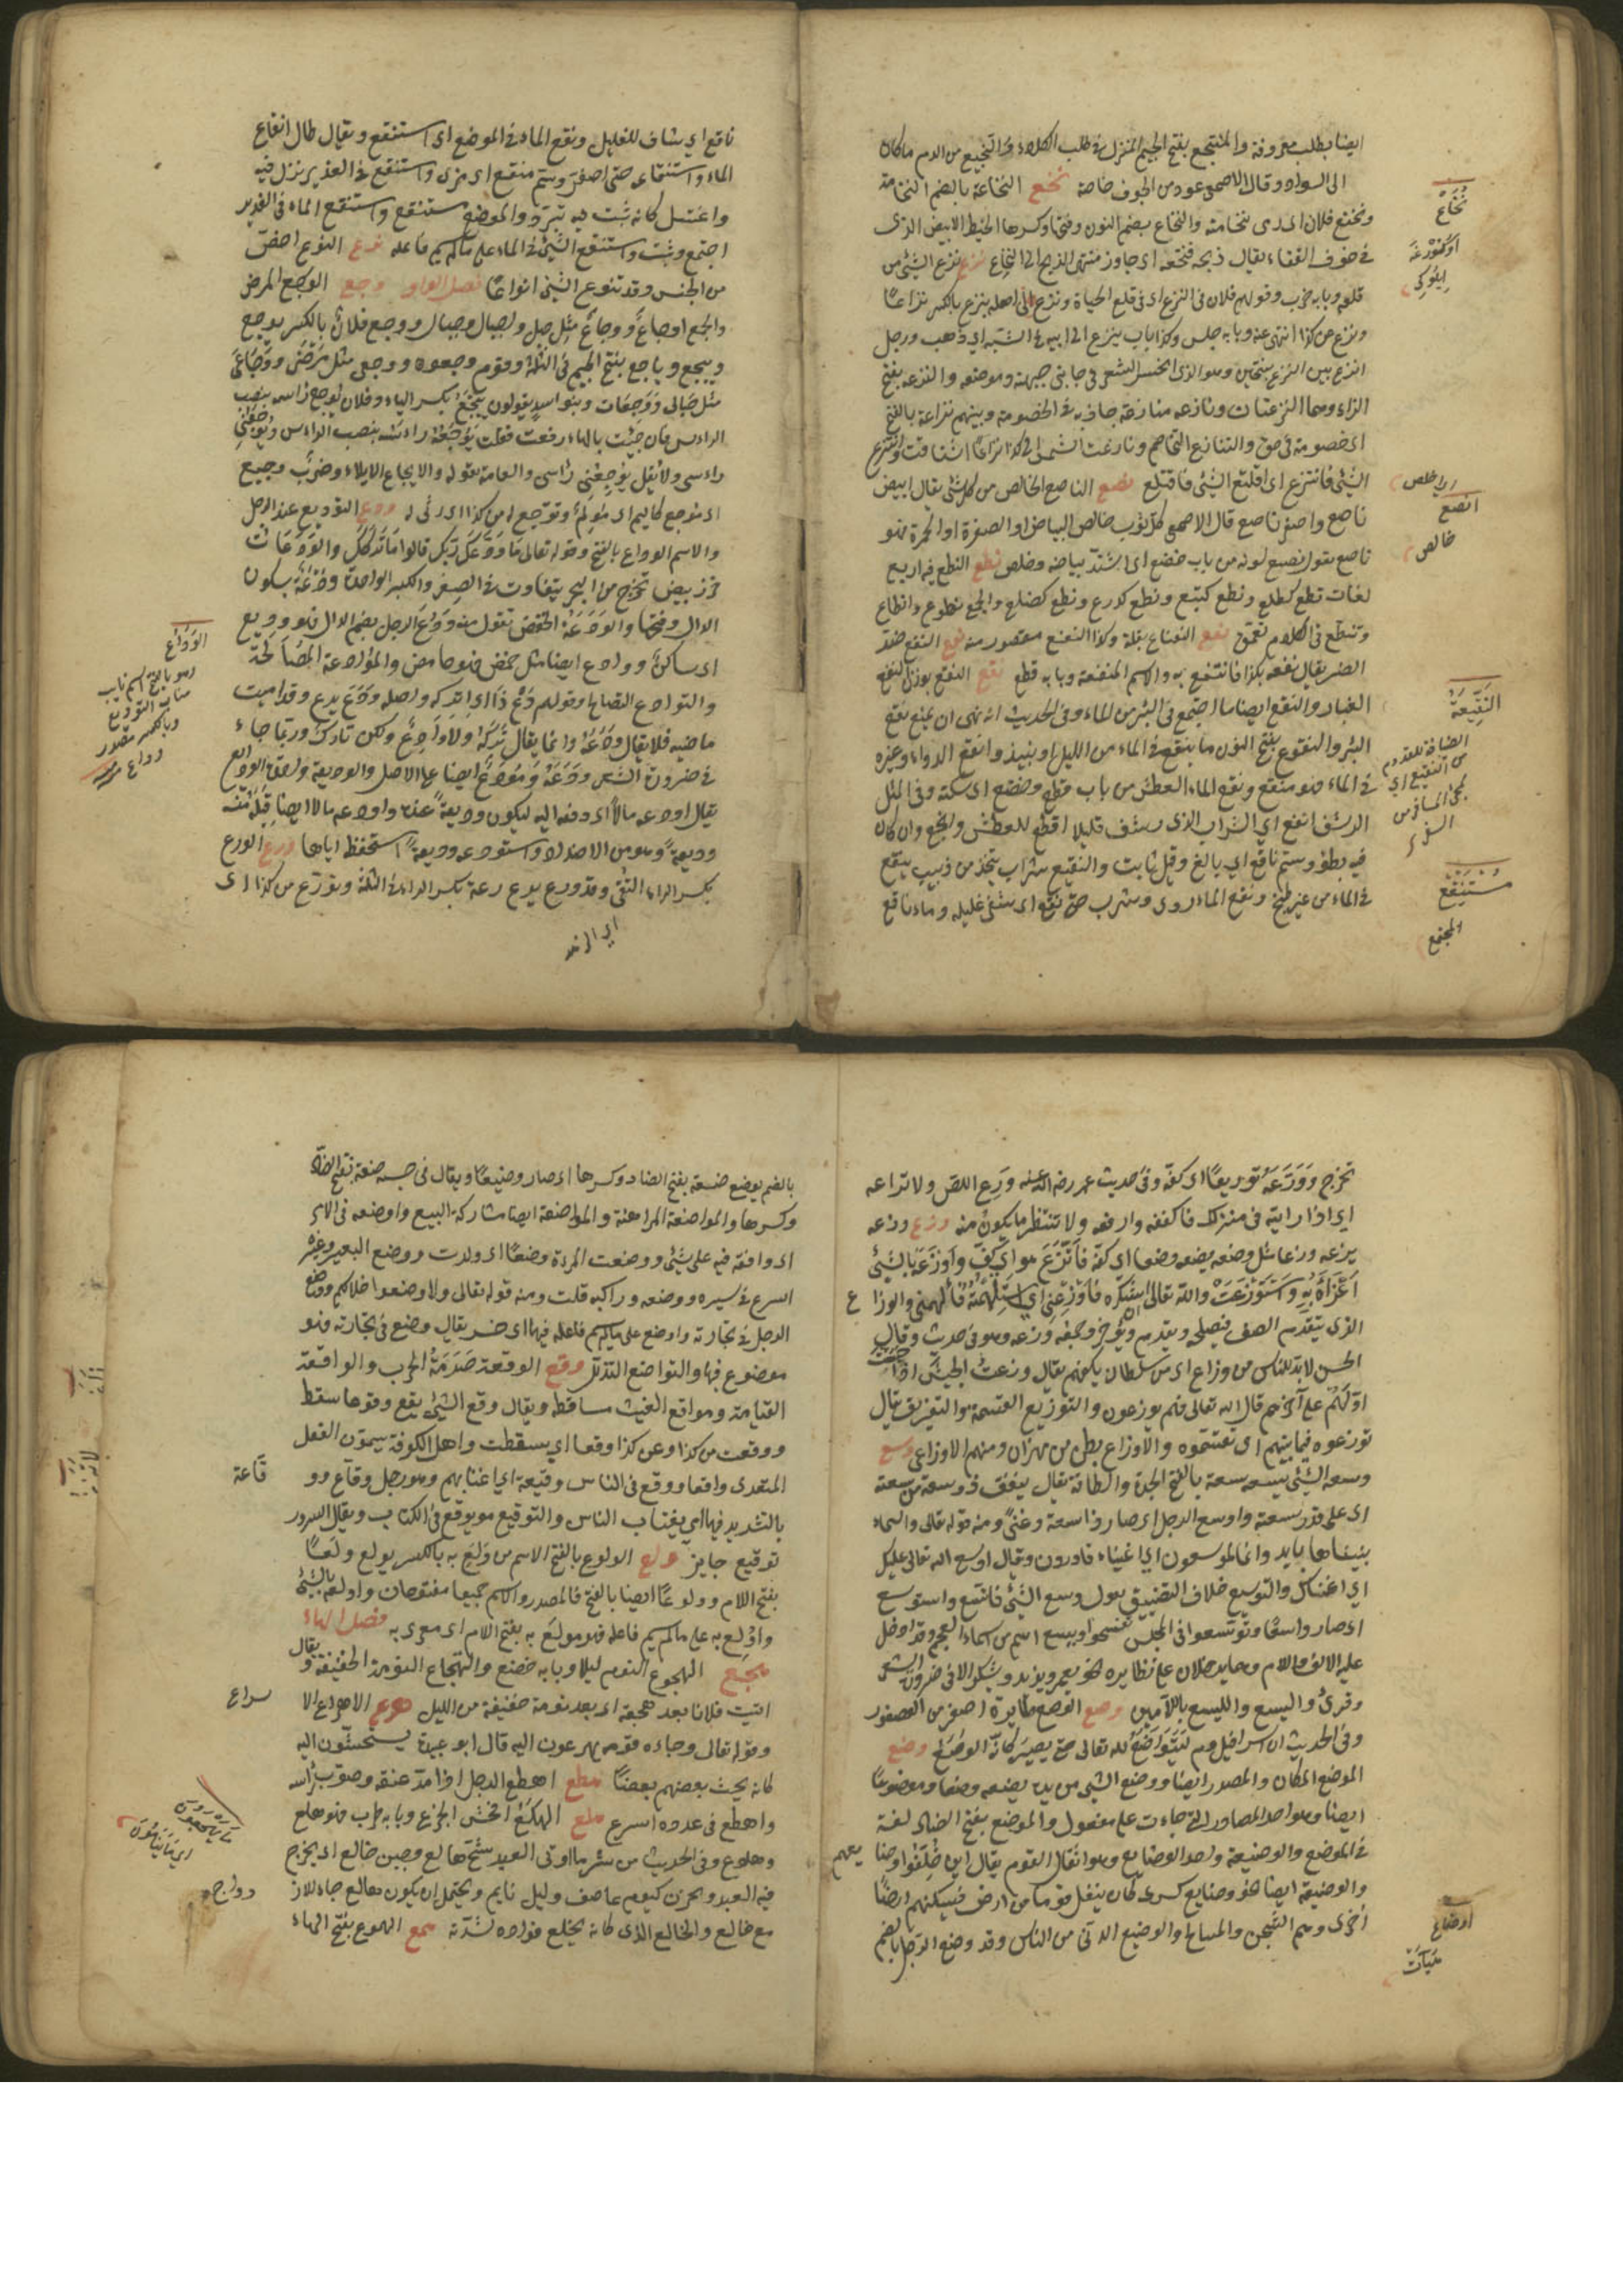 ايضا يطلب معروفه والمنتجع بفتح الجيم المنزل في طلب الكلاء والنجيع من الدم ما كان
الى السواد وقال الاصمعي هو دم الجوف خاصة نخع النخاعة بالضم النخامة
وتنخع فلان اي رمى نخامته والنخاع بضم النون وفتحها وكسرها الخيط الابيض الذي
في جوف الفقار يقال ذبحه فنخعه اي جاوز منتهى الذبح الى النخاع نزع نزع الشئ من
قلعه وبابه ضرب وقولهم فلان في النزع اي في قلع الحياة ونزع الى اهله ينزع بالكسر نزاعا
ونزع عن كذا انتهى عنه وبابه جلس وكذا باب نزع الى ابيه في الشبه اي ذهب ورجل
انزع بين النزع بفتحتين وهو الذي انحسر الشعر في جانبي جبهته وموضعه والنزعة بفتح
الزاء وهما النزعتان ونازعه منازعة جاذبه في الخصومة وبينهم نزاعة بالفتح
اي خصومة في حق والتنازع التخاصم ونازعت النفس الى كذا نزاعا اشتاقت وانتزع
الشئ فانتزع اي اقتلع الشئ فاقتلع نصع الناصع الخالص من كل شئ يقال ابيض
ناصع واصفر ناصع قال الاصمعي كل ثوب خالص البياض او الصفرة او الحمرة فهو
ناصع تقول نصع لونه من باب خضع اي اشتد بياضه وخلص نطع النطع فيه اربع
لغات نطع كطلع ونطع كتبع ونطع كدرع ونطع كضلع والجمع نطوع وانطاع
وتنطع في الكلام تعمق نعع النعناع بقلة وكذا النعنع مقصور منه نفع النفع ضد
الضر يقال نفعه بكذا فانتفع به والاسم المنفعة وبابه قطع نقع النقع بوزن النفع
الغبار والنقع ايضا ما اجتمع في البئر من الماء وفي الحديث انه نهى ان يمنع نقع
البئر والنقوع بفتح النون ما ينقع في الماء من الليل او نبيذ وانقع الدواء وغيره
في الماء فهو منقع ونقع الماء العطش من باب قطع وخضع اي سكنه وفي المثل
الرشف انقع اي الشراب الذي يرشف قليلا اقطع للعطش وانجع وان كان
فيه بطؤ وسم ناقع اي بالغ وقيل ثابت والنقيع شراب يتخذ من زبيب ينقع
في الماء من غير طبخ ونقع الماء روى وشرب حتى نقع اي شفى غليله وماء ناقع
نخاع
خالص
النقيعة
مستنقع
المجتمع
ناقع اي شاف للغليل ونقع الماء في الموضع اي استنقع ويقال طال انقاع
الماء واستنقاعه حتى اصفر وسم منقع اي مربى واستنقع في الغدير نزل فيه
واغتسل كانه ثبت فيه تبرد والموضع مستنقع واستنقع الماء في الغدير
اجتمع وثبت واستنقع الشئ في الماء على ما لم يسم فاعله نوع النوع اخص
من الجنس وقد تنوع الشئ انواعا فصل الواو وجع الوجع المرض
والجمع اوجاع ووجاع مثل جبل واجبال وجبال ووجع فلان بالكسر يوجع
وييجع وياجع بفتح الجيم في الثلثة وقوم وجعون ووجعى مثل مرضى ووجاعى
مثل حبالى ووجعات وبنو اسد يقولون ييجع بكسر الياء وفلان يوجع راسه بنصب
الراس فان جئت بالهاء رفعت فقلت يوجعه راسه بنصب الراس ويوجعني
راسي ولا تقل يوجعني راسي والعامة تقوله والايجاع الايلام وضرب وجيع
اي موجع كاليم اي مؤلم وتوجع له من كذا اي رثى له ودع التوديع عند الرحيل
والاسم الوداع بالفتح وقوله تعالى ما ودعك ربك قالوا ما تركك والودعات
خرز بيض تخرج من البحر يتفاوت في الصغر والكبر الواحدة ودعة بسكون
الدال وفتحها والودعة الخفض تقول منه ودع الرجل بضم الدال فهو وديع
اي ساكن ووادع ايضا مثل حمض فهو حامض والموادعة المصالحة
والتوادع التصالح وقولهم دع ذا اي اتركه واصله ودع يدع وقد اميت
ماضيه فلا يقال ودعه وانما يقال تركه ولا وادع ولكن تارك وربما جاء
في ضرورة الشعر ودعه ومودع ايضا على الاصل والوديعة واحدة الودائع
يقال اودعه مالا اي دفعه اليه ليكون وديعة عنده واودعه مالا ايضا قبله منه
وديعة وهو من الاضداد واستودعه وديعة استحفظه اياها ورع الورع
بكسر الراء التقي وقد ورع يرع رعة بكسر الراء في الثلثة وتورع من كذا اي
الوداع
تخرج وورعه توريعا اي كفه وفي حديث عمر رضي الله عنه ورع اللص ولا تراعه
اي اذا رايته في منزلك فاكففه وارفعه ولا تنتظر ما يكون منه وزع وزعه
يزعه وزعا مثل وضعه يضعه وضعا اي كفه فاتزع هو اي كف واوزعه بالشئ
اغراه به واستوزعت الله تعالى شكره فاوزعني اي استلهمته فالهمني والوازع
الذي يتقدم الصف فيصلحه ويقدم ويؤخر وجمعه وزعة وهو في حديث وقال
الحسن لا بد للناس من وازع اي من سلطان يكفهم يقال وزعت الجيش اذا حبست
اولهم على آخرهم قال الله تعالى فهم يوزعون والتوزيع القسمة والتفريق يقال
توزعوه فيما بينهم اي تقسموه والاوزاع بطن من همدان ومنهم الاوزاعي وسع
وسعه الشئ يسعه سعة بالفتح الجدة والطاقة يقال لينفق ذو سعة من سعته
اي على قدر سعته واوسع الرجل اي صار ذا سعة وغنى ومنه قوله تعالى والسماء
بنيناها بايد وانا لموسعون اي اغنياء قادرون ويقال اوسع الله تعالى عليك
اي اغناك والتوسيع خلاف التضييق تقول وسع الشئ فاتسع واستوسع
اي صار واسعا وتوسعوا في المجلس تفسحوا ويسع اسم من اسماء العجم وقد ادخل
عليه الالف واللام وهما لا يدخلان على نظايره نحو يعمر ويزيد ويشكر الا في ضرورة الشعر
وقرئ واليسع والليسع باللامين وصع الوصع طاير اصغر من العصفور
وفي الحديث ان اسرافيل ليتواضع لله تعالى حتى يصير كانه الوصع وضع
الموضع المكان والمصدر ايضا ووضع الشئ من يده يضعه وضعا وموضوعا
ايضا وهو احد المصادر التي جاءت على مفعول والموضع بفتح الضاد لغة
في الموضع والوضيعة واحد الوضايع وهو اثقال القوم يقال اين خلفوا وضايعهم
والوضيعة ايضا نحو وضايع كسرى كان ينقل قوما من ارض فيسكنهم ارضا
اخرى وهم الشحن والمسالح والوضيع الدني من الناس وقد وضع الرجل بالضم
اوضاع
بالضم يوضع ضعة بفتح الضاد وكسرها اي صار وضيعا ويقال في حسبه ضعة بفتح الضاد
وكسرها والمواضعة المراهنة والمواضعة ايضا متاركة البيع وواضعه في الامر
اي وافقه فيه على شئ ووضعت المرءة وضعا اي ولدت ووضع البعير وغيره
اسرع في سيره واوضعه راكبه قلت ومنه قوله تعالى ولاوضعوا خلالكم ووضع
الرجل في تجارته واوضع على ما لم يسم فاعله فيهما اي خسر يقال وضع في تجارته فهو
موضوع فيها والتواضع التذلل وقع الوقعة صدمة الحرب والواقعة
القيامة ومواقع الغيث مساقطه ويقال وقع الشئ يقع وقوعا سقط
ووقعت من كذا وعن كذا وقعا اي سقطت واهل الكوفة يسمون الفعل
المتعدي واقعا ووقع في الناس وقيعة اي اغتابهم وهو رجل وقاع ووقاعة
بالتشديد فيهما اي يغتاب الناس والتوقيع ما يوقع في الكتاب ويقال السرور
توقيع جايز ولع الولوع بالفتح الاسم من ولع به بالكسر يولع ولعا
بفتح اللام وولوعا ايضا بالفتح فالمصدر والاسم جميعا مفتوحان واولعه بالشئ
واولع به على ما لم يسم فاعله فهو مولع به بفتح اللام اي مغرى به فصل الهاء
هجع الهجوع النوم ليلا وبابه خضع والتهجاع النومة الخفيفة ويقال
اتيت فلانا بعد هجعة اي بعد نومة خفيفة من الليل هرع الاهراع الاسراع
وقوله تعالى وجاءه قومه يهرعون اليه قال ابو عبيدة يستحثون اليه
كانه يحث بعضهم بعضا هطع اهطع الرجل اذا مد عنقه وصوب راسه
واهطع في عدوه اسرع هلع الهلع افحش الجزع وبابه طرب فهو هلع
وهلوع وفي الحديث من شر ما اوتي العبد شح هالع وجبن خالع اي يجزع
فيه العبد ويحزن كيوم عاصف وليل نايم ويحتمل ان يكون هالع جاء للازدواج
مع خالع والخالع الذي كانه يخلع فواده لشدته همع الهموع بفتح الهاء